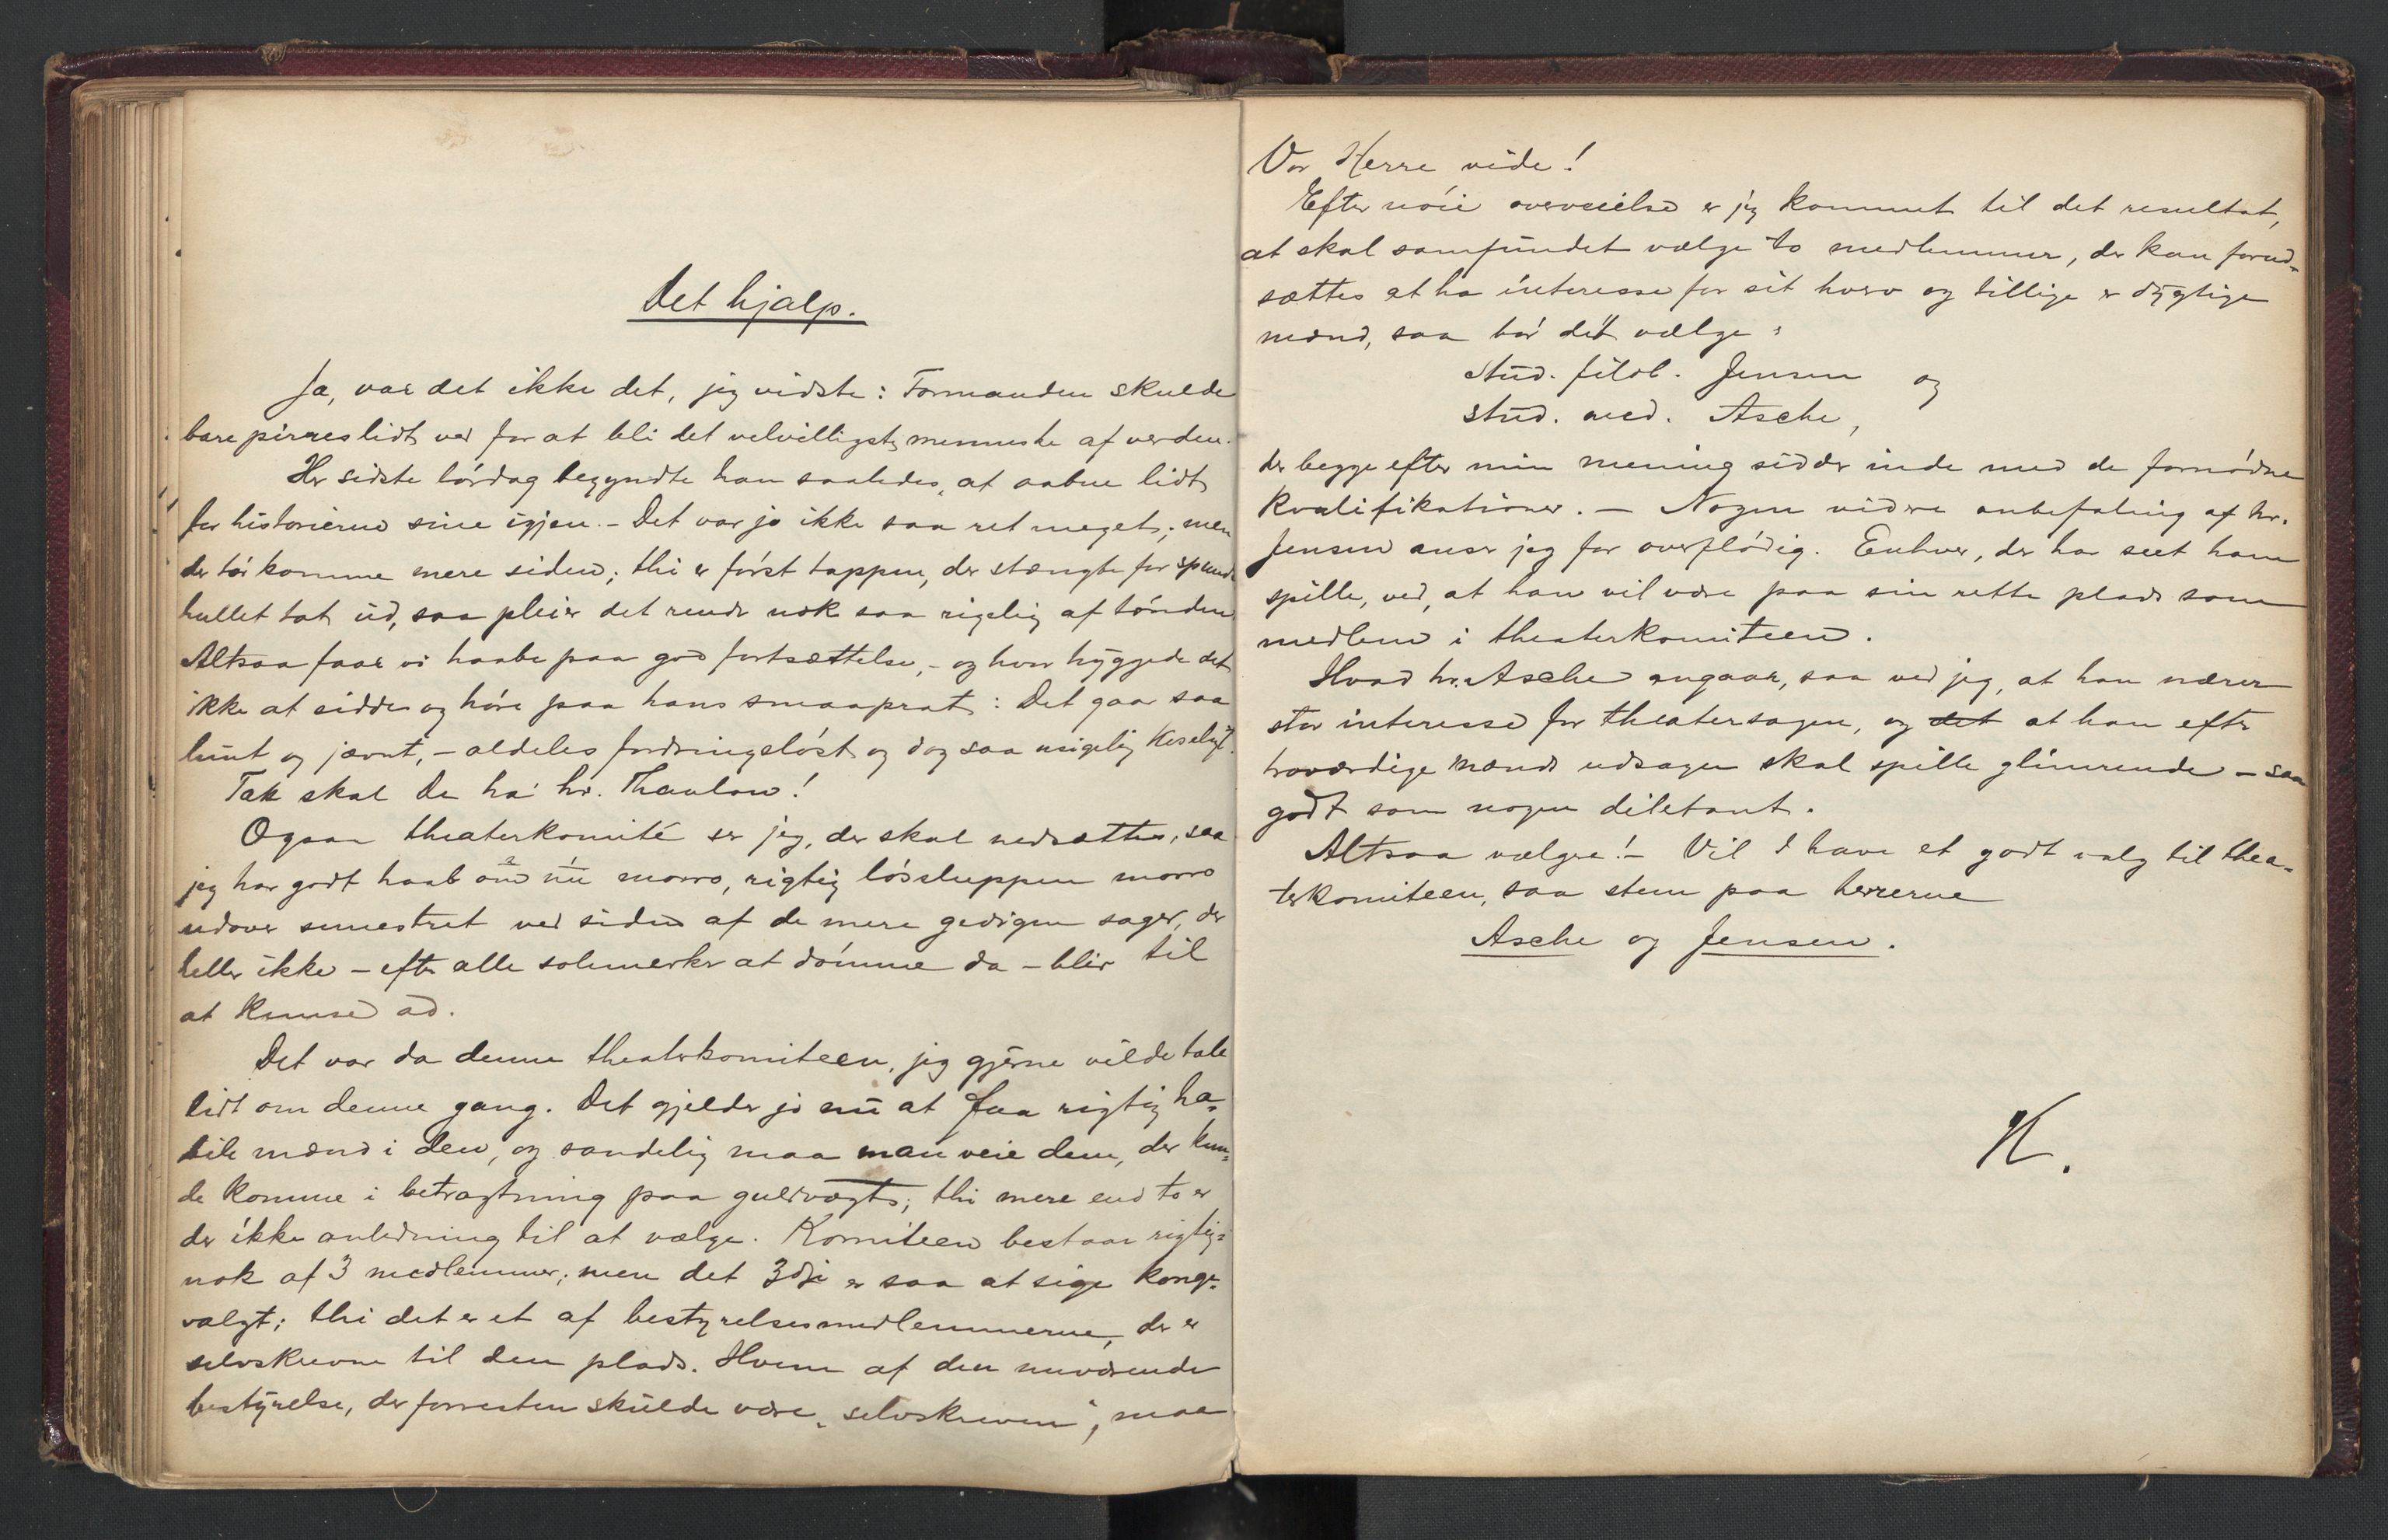 Det hjalp.
Ja, var det ikke det, jeg vidste: Formanden skulde
bare pirres lidt ved for at bli det velvilligste menneske af verden.
Her sidste lørdag begyndte han saaledes at aabne lidt
for historierne sine igjen. – Det var jo ikke saa ret meget; men
der tør komme mere siden; thi er først tappen, der stængte for spund-
hullet tat ud, saa pleier det rende nok saa rigelig af tønden.
Altsaa faar vi haabe paa god fortsættelse, – og hvor hyggede det
ikke at sidde og høre paa hans smaaprat: Det gaar saa
lunt og jævnt, – aldeles fordringsløst og dog saa usigelig koseligt.
Tak skal De ha' hr. Thaulow!
Ogsaa theaterkomité ser jeg, der skal nedsættes, saa
jeg har godt haab om nu morro, rigtig løssluppen morro
udover semestret ved siden af de mere gedigne sager, der
heller ikke – efter alle solemerker at dømme da – blir til
at kimse ad.
Det var da denne theaterkomiteen, jeg gjerne vilde tale
lidt om denne gang. Det gjelder jo nu at faa rigtig ha-
bile mænd i den, og sandelig maa man veie dem, der kun-
de komme i betragtning paa guldvægt; thi mere end to er
der ikke anledning til at vælge. Komiteen bestaar rigtig-
nok af 3 medlemmer; men det 3dje er saa at sige konge-
valgt; thi det er et af bestyrelsesmedlemmerne, der er
selvskrevne til den plads. Hvem af den nuværende
bestyrelse, der forresten skulde være „selvskreven", maa
Vor Herre vide!
Efter nøie overveielse er jeg kommet til det resultat,
at skal samfundet vælge to medlemmer, der kan forud-
sættes at ha interesse for sit hverv og tillige er dygtige
mænd, saa bør det vælge:
stud. filol. Jensen og
stud. med. Asche,
der begge efter min mening sidder inde med de fornødne
kvalifikationer. – Nogen videre anbefaling af hr.
Jensen anser jeg for overflødig. Enhver, der har seet ham
spille, ved, at han vil være paa sin rette plads som
medlem i theaterkomiteen.
Hvad hr. Asche angaar, saa ved jeg, at han nærer
stor interesse for theatersagen, og det at han efter
troværdige mænds udsagn skal spille glimrende – saa
godt som nogen diletant.
Altsaa vælgere! – Vil I have et godt valg til thea-
terkomiteen, saa stem paa herrerne
Asche og Jensen.
K.